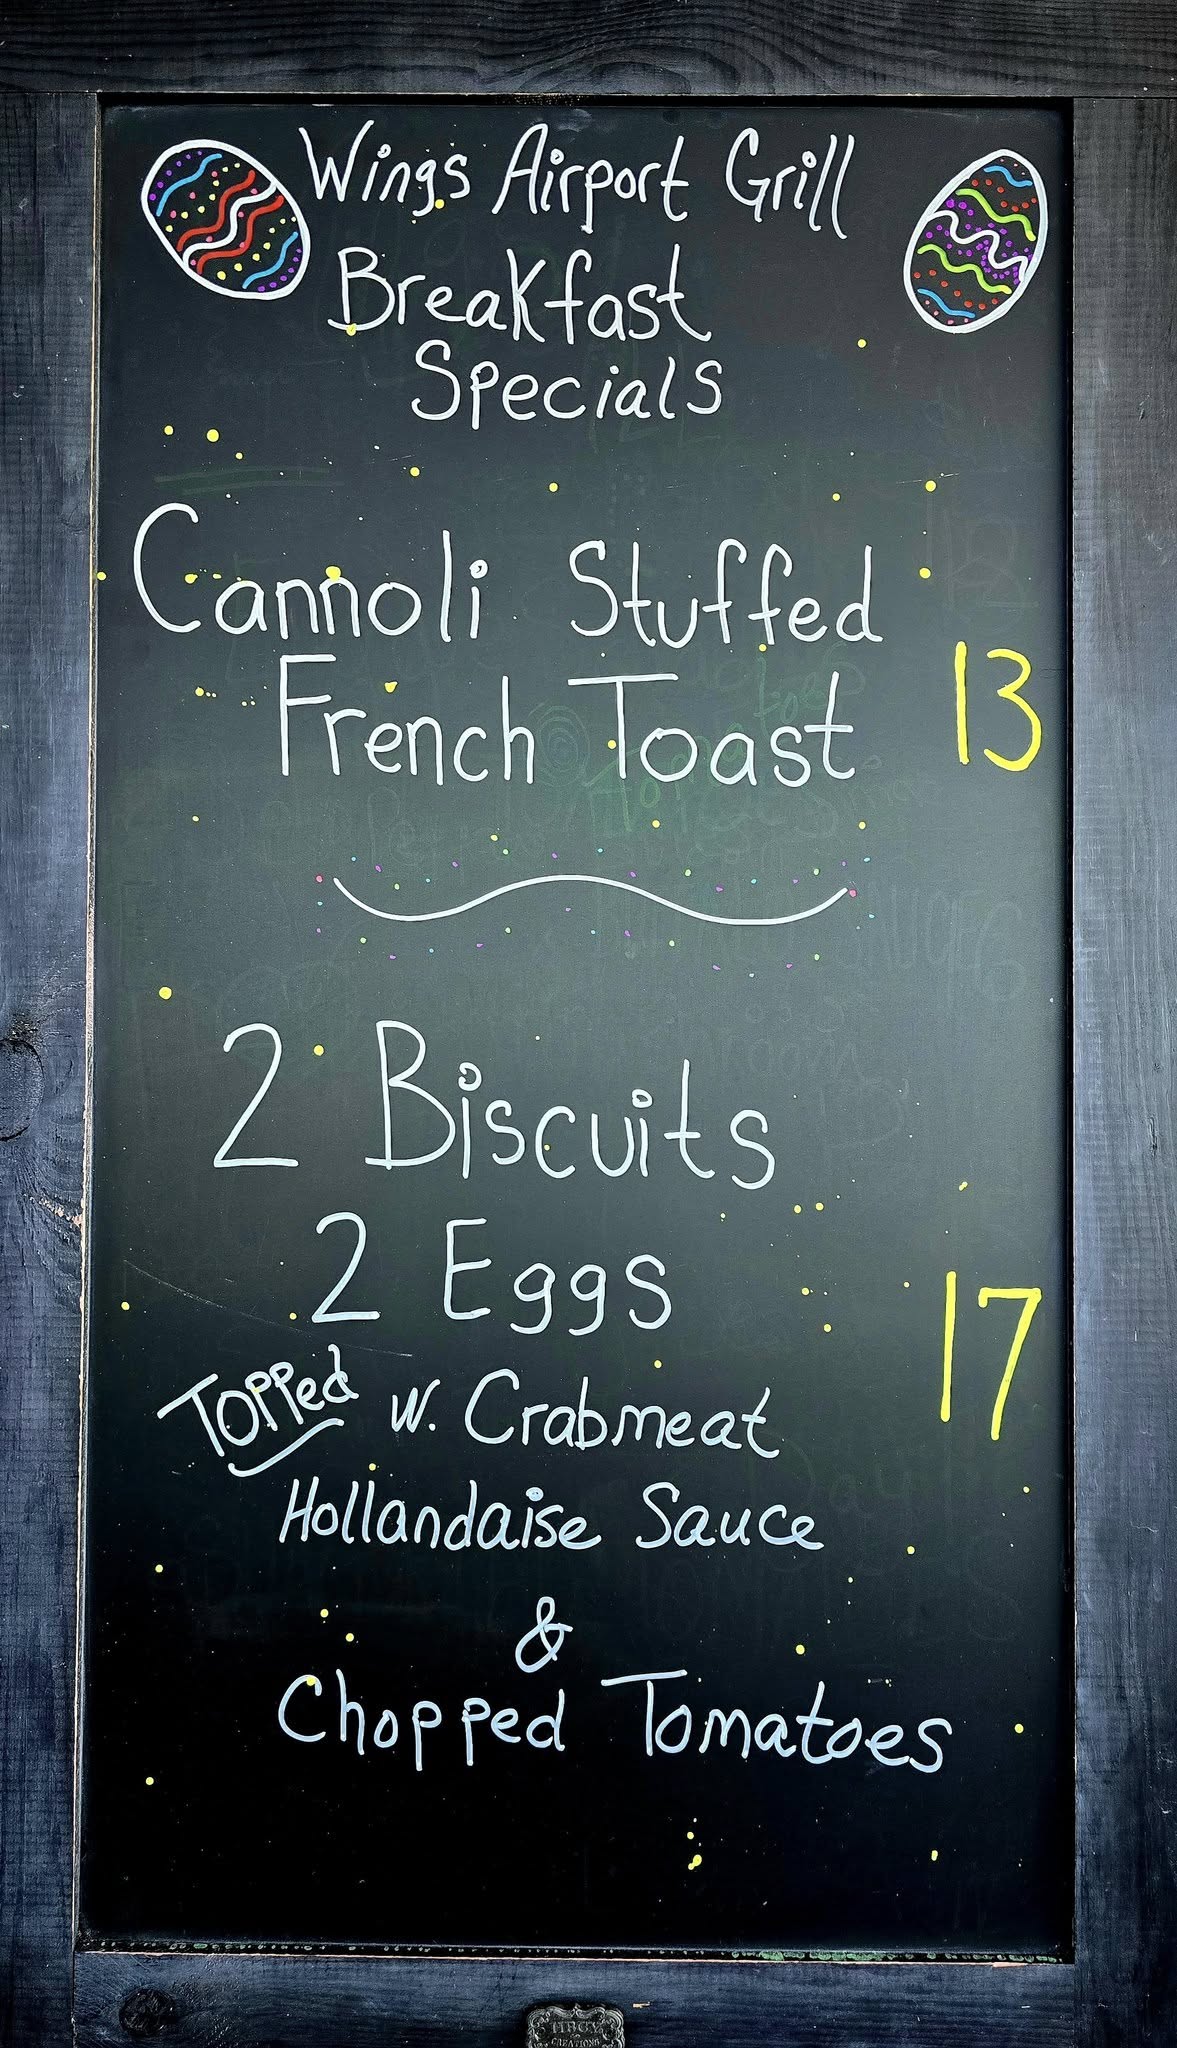 Wings Airport Grill
Breakfast
Specials
Cannoli Stuffed
French Toast
13
2 Biscuits
2 Eggs
17
Topped w. Crabmeat
Hollandaise Sauce
&
Chopped Tomatoes
CREATIONS